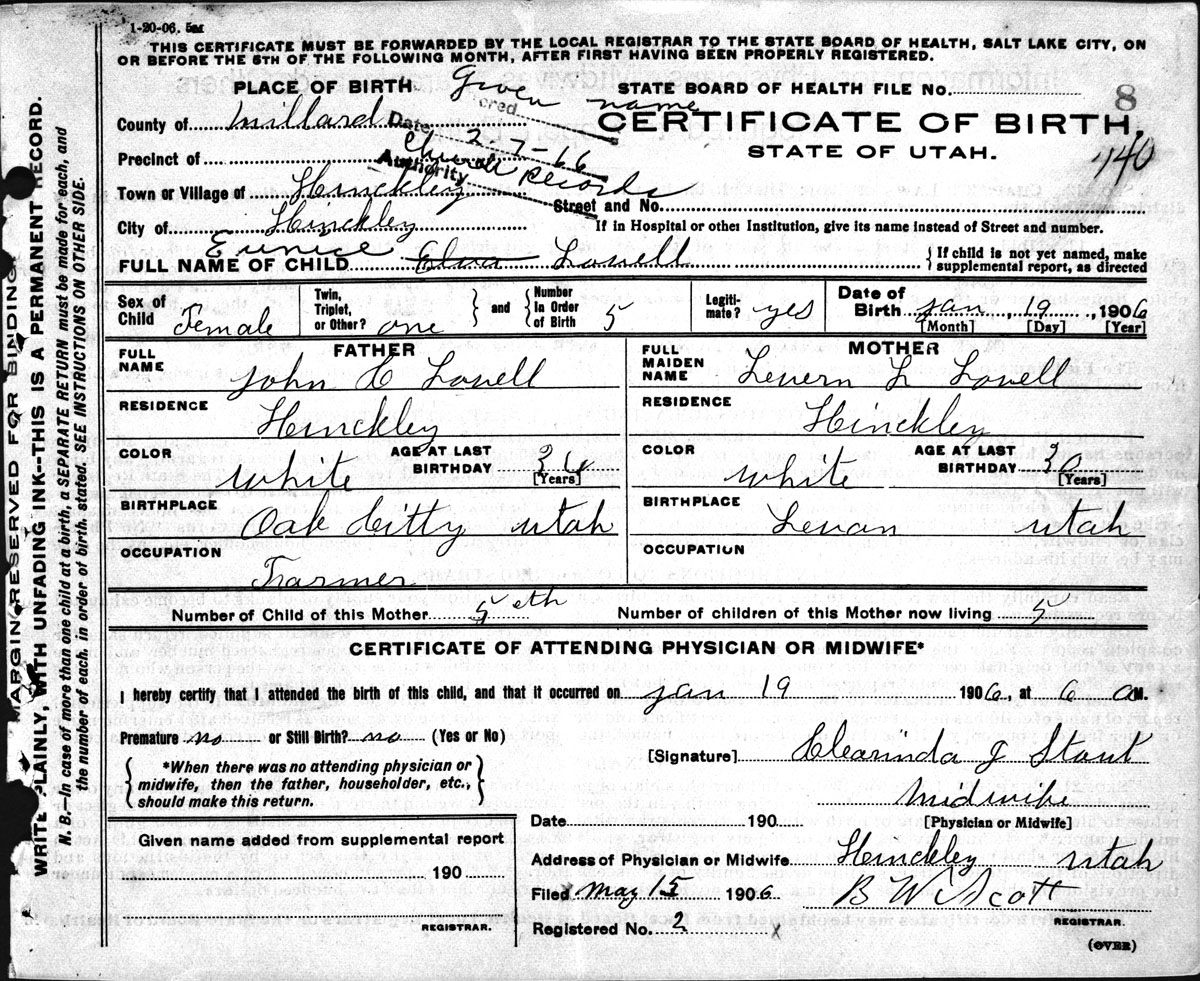 1-20-06. 5M
THIS CERTIFICATE MUST BE FORWARDED BY THE LOCAL REGISTRAR TO THE STATE BOARD OF HEALTH, SALT LAKE CITY, ON
OR BEFORE THE 5TH OF THE FOLLOWING MONTH, AFTER FIRST HAVING BEEN PROPERLY REGISTERED.
PLACE OF BIRTH Given name STATE BOARD OF HEALTH FILE No. 8
County of Millard
Date 2-7-66
CERTIFICATE OF BIRTH,
STATE OF UTAH.
440
Precinct of
Authority Church Records
Town or Village of Hinckley Street and No.
City of Hinckley If in Hospital or other Institution, give its name instead of Street and number.
FULL NAME OF CHILD Eunice Lovell { If child is not yet named, make supplemental report, as directed
Sex of Child Female Twin, Triplet, or Other? one } and { Number In Order of Birth 5 Legiti-mate? yes Date of Birth Jan 19, 1906
[Month] [Day] [Year]
FATHER MOTHER
FULL NAME John E Lovell FULL MAIDEN NAME Levern L Lovell
RESIDENCE Hinckley RESIDENCE Hinckley
COLOR white AGE AT LAST BIRTHDAY [Years] COLOR white AGE AT LAST BIRTHDAY 30 [Years]
BIRTHPLACE Oak Citty Utah BIRTHPLACE Levan Utah
OCCUPATION Farmer OCCUPATION
Number of Child of this Mother 5eth Number of children of this Mother now living 5
CERTIFICATE OF ATTENDING PHYSICIAN OR MIDWIFE*
I hereby certify that I attended the birth of this child, and that it occurred on Jan 19 1906, at 6 a M.
Premature no or Still Birth? no (Yes or No)
[Signature] Clearinda J Stout
{ *When there was no attending physician or midwife, then the father, householder, etc., should make this return. }
Midwife
[Physician or Midwife]
Date 190
Given name added from supplemental report
190
REGISTRAR.
Address of Physician or Midwife Hinckley Utah
Filed May 15 1906 B W Scott
REGISTRAR.
Registered No. 2
(OVER)
MARGIN RESERVED FOR BINDING.
WRITE PLAINLY, WITH UNFADING INK--THIS IS A PERMANENT RECORD.
N. B.—In case of more than one child at a birth, a SEPARATE RETURN must be made for each, and
the number of each, in order of birth, stated. SEE INSTRUCTIONS ON OTHER SIDE.